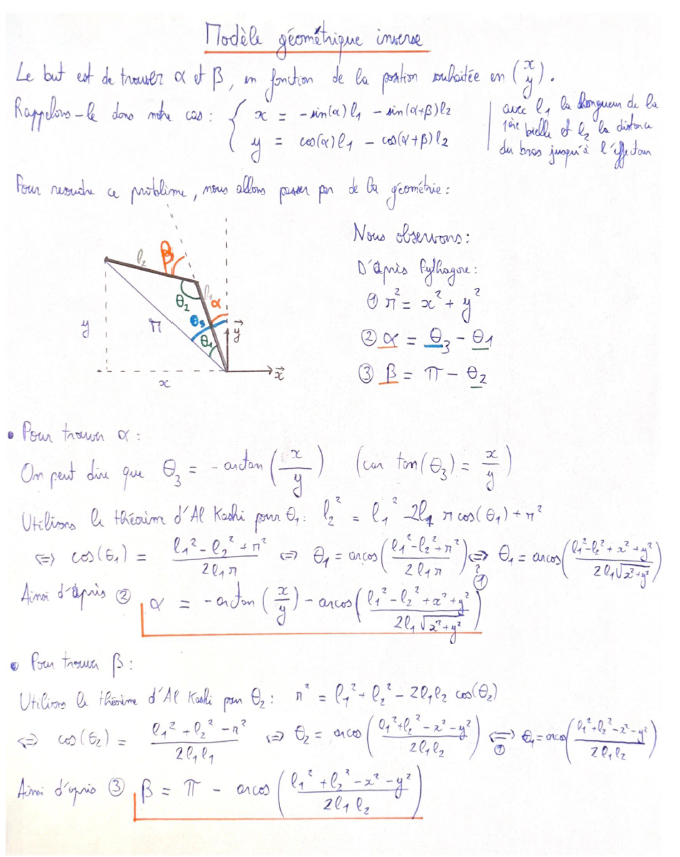 Modèle géométrique inverse
Le but est de trouver α et β, en fonction de la position souhaitée en (x y).
Rappelons-le dans notre cas : { x = -sin(α) l₁ - sin(α+β) l₂
y = cos(α) l₁ - cos(α+β) l₂
avec l₁ la longueur de la
1ère bielle et l₂ la distance
du bras jusqu'à l'effecteur
Pour résoudre ce problème, nous allons passer par de la géométrie :
l₂ β
θ₂ l₁ α
y r θ₃ θ₁ y⃗
x x⃗
Nous observons :
D'après Pythagore :
① r² = x² + y²
② α = θ₃ - θ₁
③ β = π - θ₂
• Pour trouver α :
On peut dire que θ₃ = -arctan(x/y) (car tan(θ₃) = x/y)
Utilisons le théorème d'Al Kashi pour θ₁ : l₂² = l₁² - 2l₁ r cos(θ₁) + r²
⇔ cos(θ₁) = (l₁² - l₂² + r²)/(2l₁r) ⇔ θ₁ = arcos((l₁² - l₂² + r²)/(2l₁r)) ⇔ ① θ₁ = arcos((l₁² - l₂² + x² + y²)/(2l₁√(x²+y²)))
Ainsi d'après ② α = -arctan(x/y) - arcos((l₁² - l₂² + x² + y²)/(2l₁√(x²+y²)))
• Pour trouver β :
Utilisons le théorème d'Al Kashi pour θ₂ : r² = l₁² + l₂² - 2l₁l₂ cos(θ₂)
⇔ cos(θ₂) = (l₁² + l₂² - r²)/(2l₁l₁) ⇔ θ₂ = arcos((l₁² + l₂² - x² - y²)/(2l₁l₂)) ⇔ ① θ₁ = arcos((l₁² + l₂² - x² - y²)/(2l₁l₂))
Ainsi d'après ③ β = π - arcos((l₁² + l₂² - x² - y²)/(2l₁l₂))